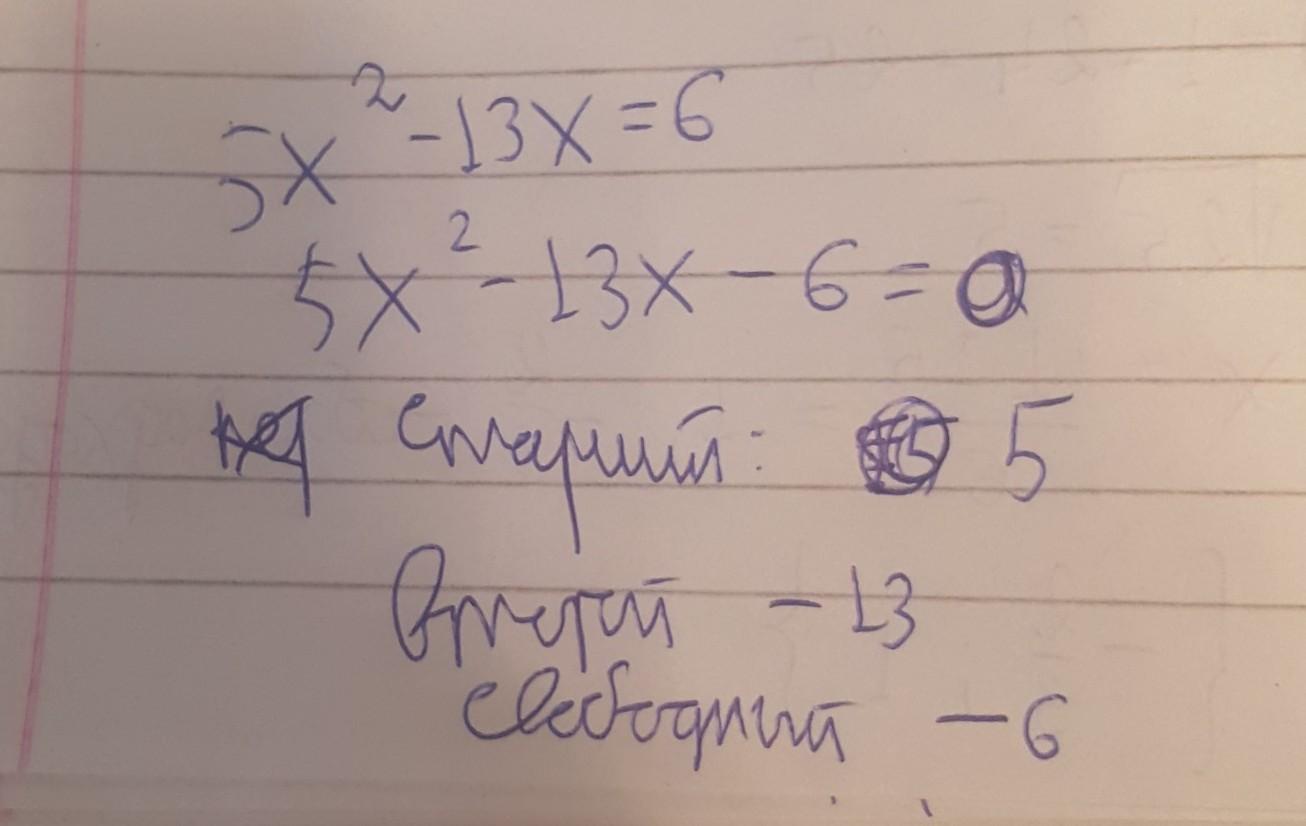 5x² - 13x = 6
5x² - 13x - 6 = 0
Старший: 5
Второй - 13
Свободный - 6